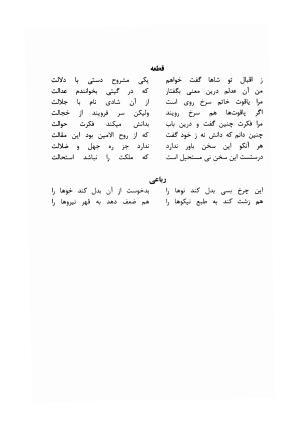 قطعه
ز اقبال تو شاها گفت خواهم یکی مشروح دستی با دلالت
من آن عدلم درین معنی بگفتار که در گیتی بخوانندم عدالت
مرا یاقوت خاتم سرخ روی است از آن شادی نام با جلالت
اگر یاقوت‌ها هم سرخ رویند ولیکن سر فرویند از خجالت
مرا فکرت چنین گفت و درین باب بدانش میکند فکرت حوالت
چنین دانم که دانش نه ز خود گفت که از روح الامین بود این مقالت
هر آنکو این سخن باور ندارد ندارد جز ره جهل و ضلالت
درستست این سخن نی مستحیل است که ملکت را نباشد استحالت
رباعی
این چرخ بسی بدل کند نوها را بدخوست از آن بدل کند خوها را
هم زشت کند به طبع نیکوها را هم ضعف دهد به قهر نیروها را